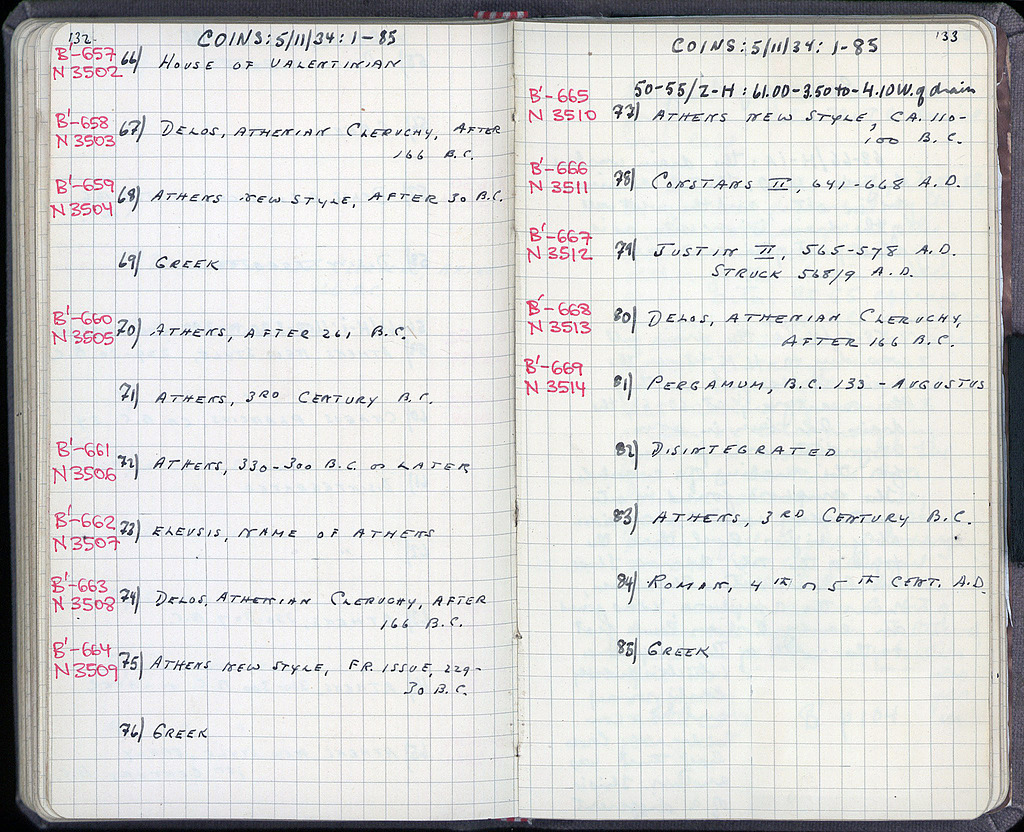 132
COINS: 5/11/34: 1-85
B'-657
N 3502
66) HOUSE OF VALENTINIAN
B'-658
N 3503
67) DELOS, ATHENIAN CLERUCHY, AFTER
166 B.C.
B'-659
N 3504
68) ATHENS NEW STYLE, AFTER 30 B.C.
69) GREEK
B'-660
N 3505
70) ATHENS, AFTER 261 B.C.
71) ATHENS, 3RD CENTURY B.C.
B'-661
N 3506
72) ATHENS, 330-300 B.C. or LATER
B'-662
N 3507
73) ELEUSIS, NAME OF ATHENS
B'-663
N 3508
74) DELOS, ATHENIAN CLERUCHY, AFTER
166 B.C.
B'-664
N 3509
75) ATHENS NEW STYLE, FR. ISSUE, 229-
30 B.C.
76) GREEK
133
COINS: 5/11/34: 1-85
50-55/Z-H: 61.00-3.50 to -4.10 W. of drain
B'-665
N 3510
77) ATHENS NEW STYLE, CA. 110-
100 B.C.
B'-666
N 3511
78) CONSTANS II, 641-668 A.D.
B'-667
N 3512
79) JUSTIN II, 565-578 A.D.
STRUCK 568/9 A.D.
B'-668
N 3513
80) DELOS, ATHENIAN CLERUCHY,
AFTER 166 B.C.
B'-669
N 3514
81) PERGAMUM, B.C. 133 - AUGUSTUS
82) DISINTEGRATED
83) ATHENS, 3RD CENTURY B.C.
84) ROMAN, 4TH or 5TH CENT. A.D.
85) GREEK